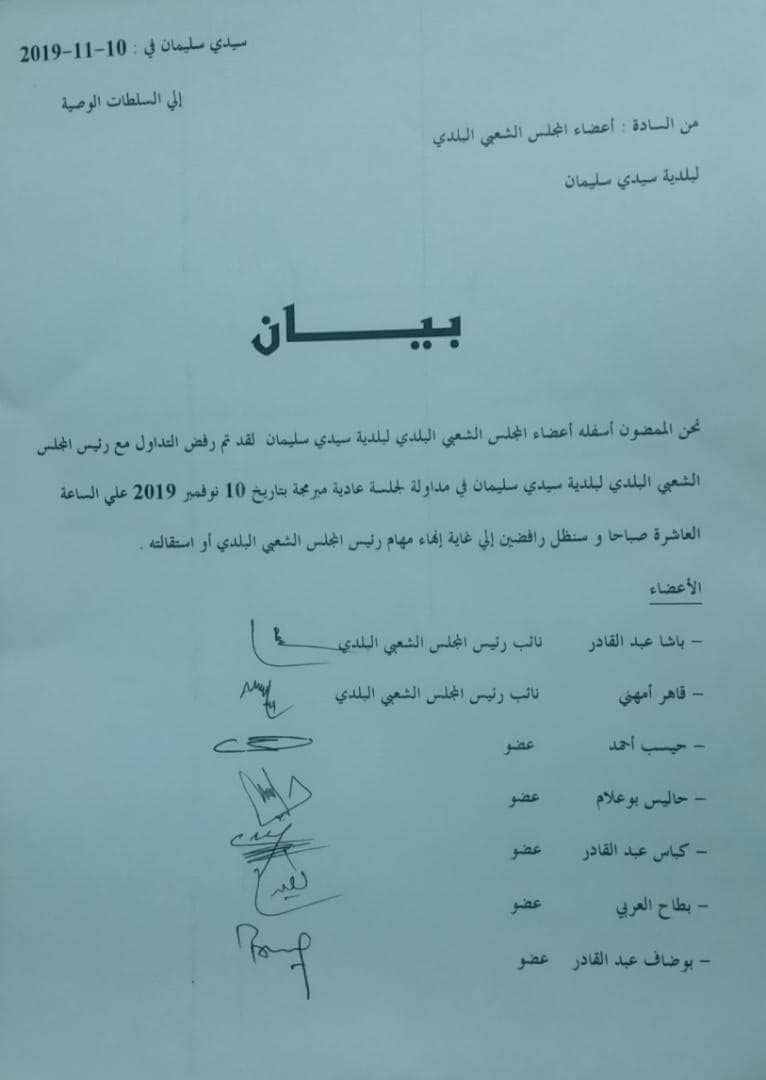 سيدي سليمان في : 10-11-2019
إلي السلطات الوصية
من السادة : أعضاء المجلس الشعبي البلدي
لبلدية سيدي سليمان
بيـــــان
نحن الممضون أسفله أعضاء المجلس الشعبي البلدي لبلدية سيدي سليمان لقد تم رفض التداول مع رئيس المجلس
الشعبي البلدي لبلدية سيدي سليمان في مداولة لجلسة عادية مبرمجة بتاريخ 10 نوفمبر 2019 علي الساعة
العاشرة صباحا و سنظل رافضين إلي غاية إنهاء مهام رئيس المجلس الشعبي البلدي أو استقالته .
الأعضاء
– باشا عبد القادر نائب رئيس المجلس الشعبي البلدي
– قاهر أمهني نائب رئيس المجلس الشعبي البلدي
– حيسب أحمد عضو
– حاليس بوعلام عضو
– كباس عبد القادر عضو
– بطاح العربي عضو
– بوضاف عبد القادر عضو